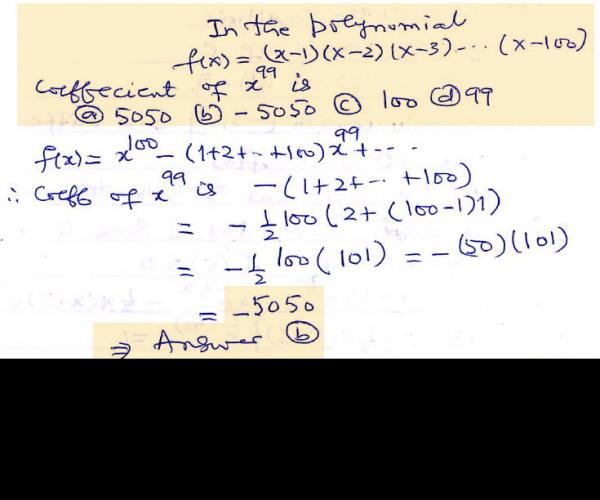 In the polynomial
f(x) = (x-1)(x-2)(x-3)--..(x-100)
Coeffecient of x^99 is
(a) 5050 (b) -5050 (c) 100 (d) 99
f(x) = x^100 - (1+2+--+100)x^99 +---
∴ Coeff of x^99 is -(1+2+--+100)
= -1/2 100(2+(100-1)1)
= -1/2 100(101) = -(50)(101)
= -5050
⇒ Answer (b)